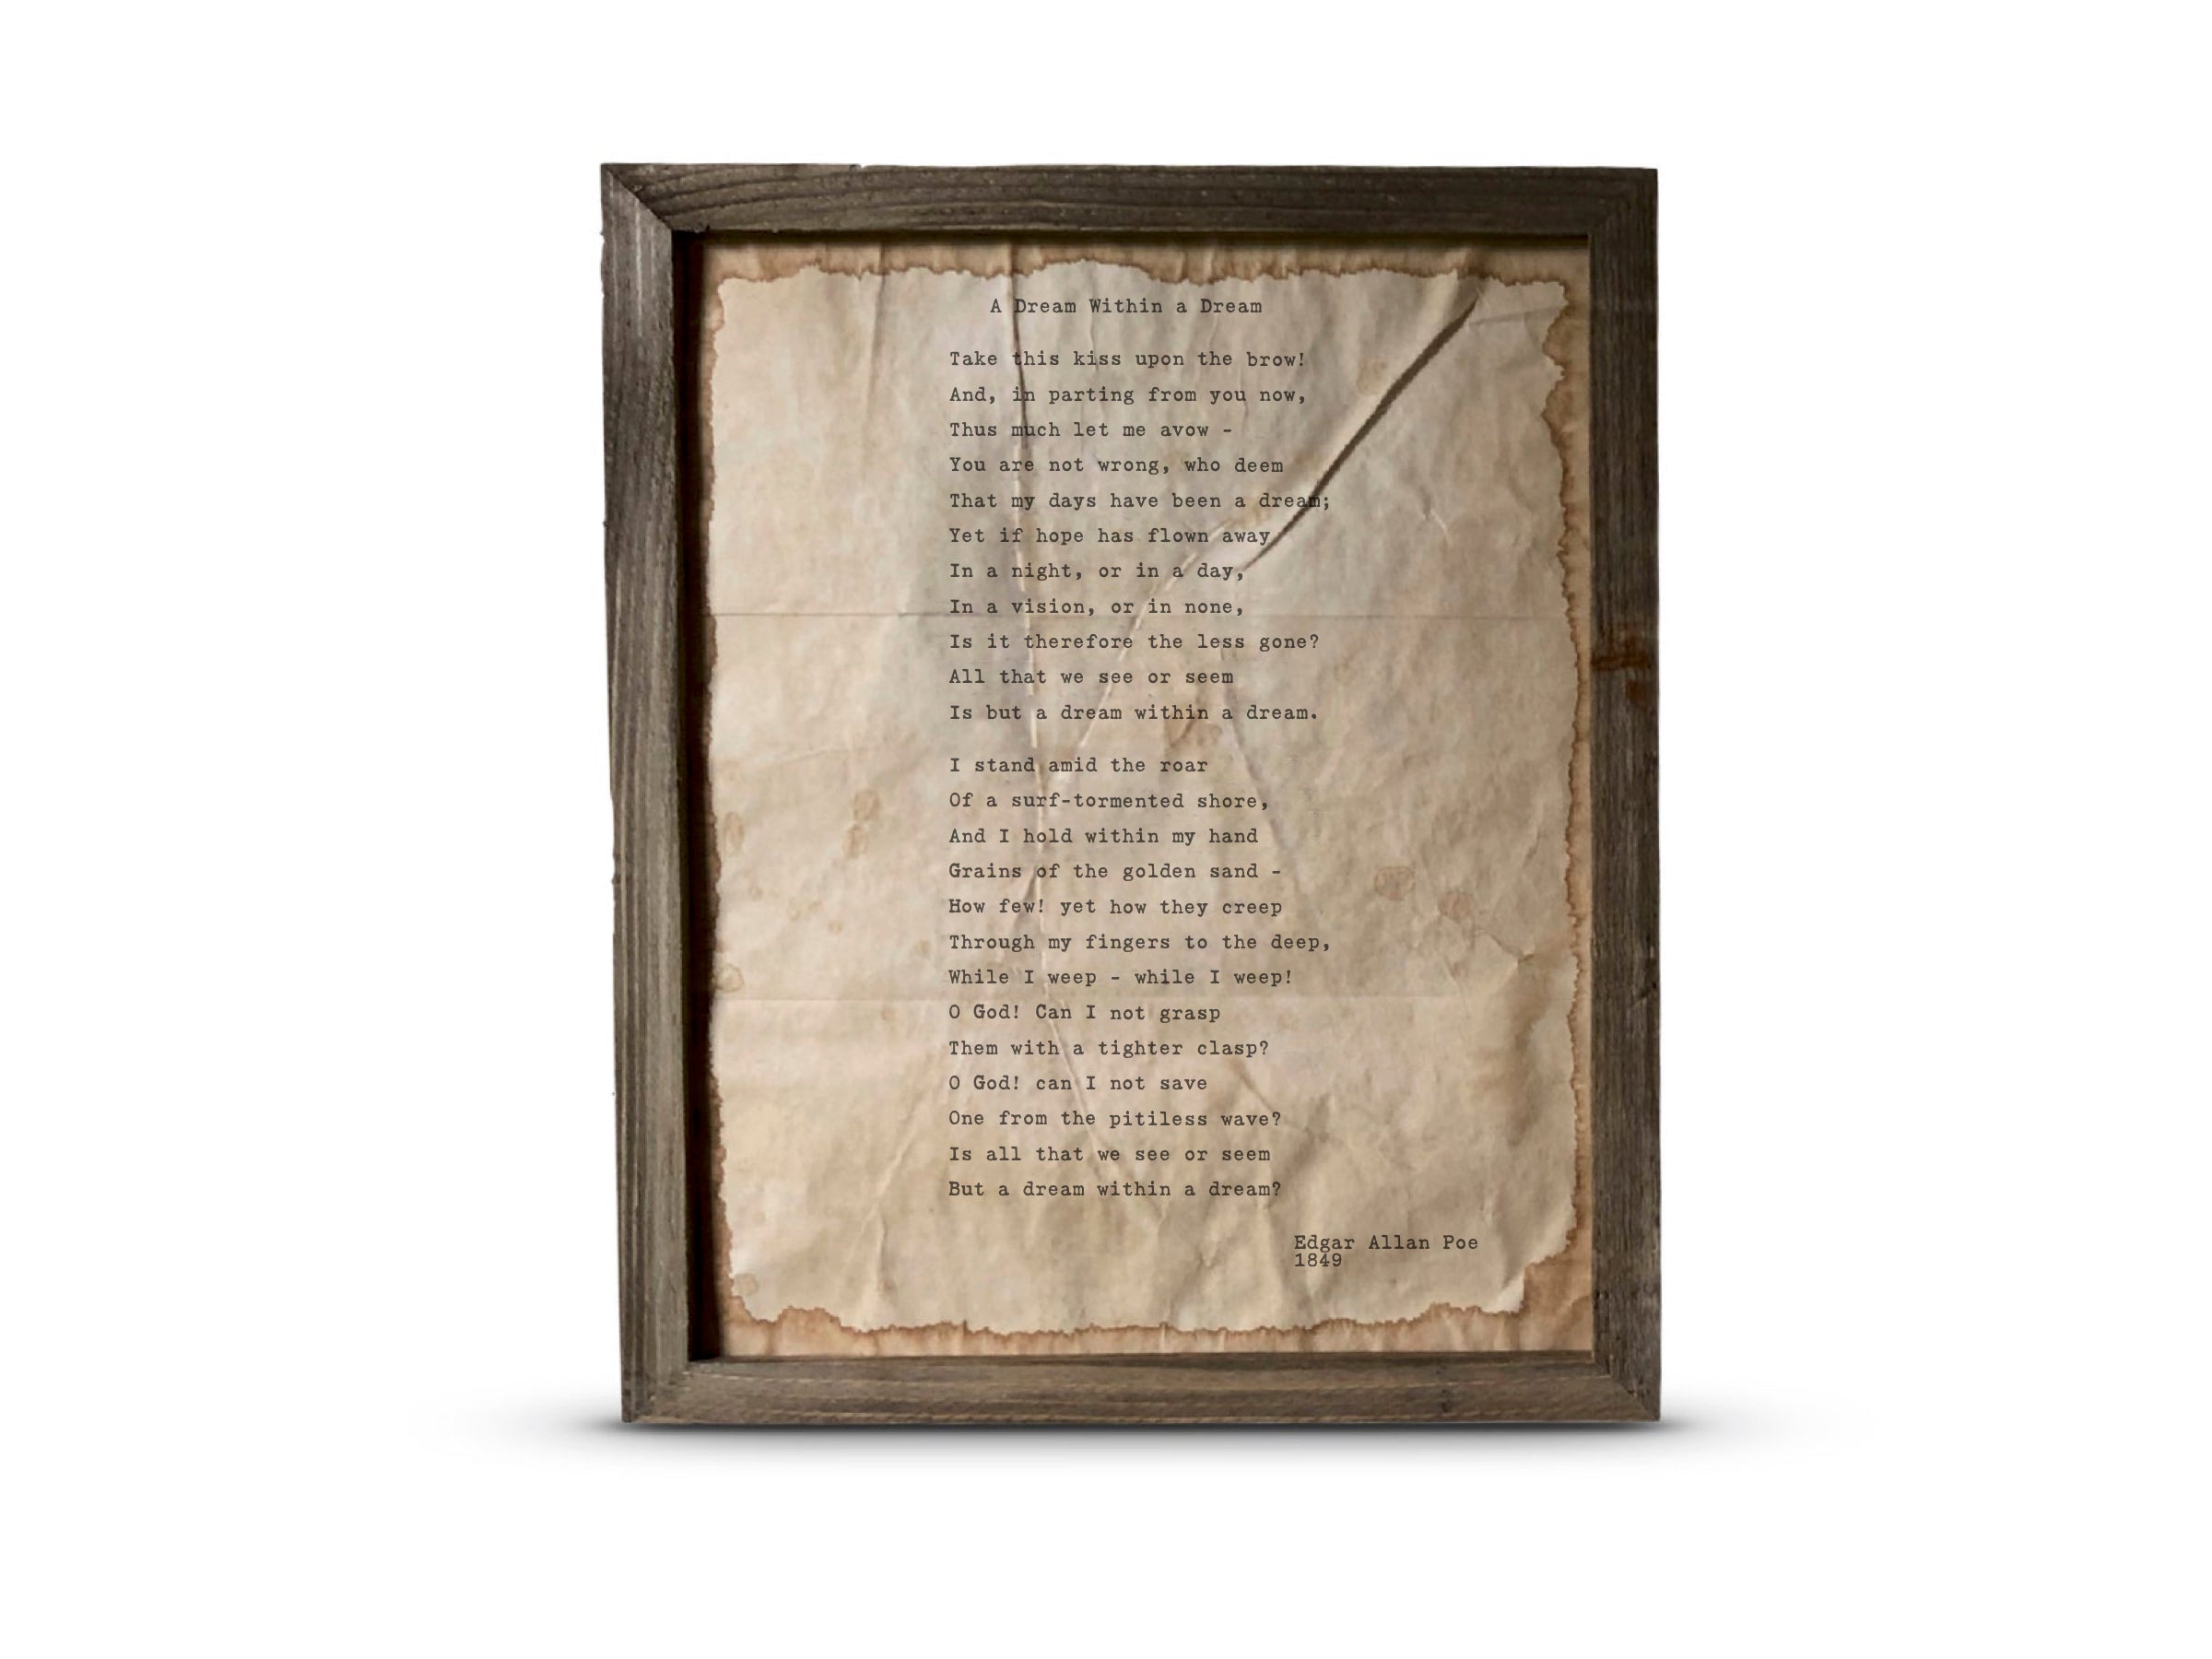 A Dream Within a Dream
Take this kiss upon the brow!
And, in parting from you now,
Thus much let me avow -
You are not wrong, who deem
That my days have been a dream;
Yet if hope has flown away
In a night, or in a day,
In a vision, or in none,
Is it therefore the less gone?
All that we see or seem
Is but a dream within a dream.
I stand amid the roar
Of a surf-tormented shore,
And I hold within my hand
Grains of the golden sand -
How few! yet how they creep
Through my fingers to the deep,
While I weep - while I weep!
O God! Can I not grasp
Them with a tighter clasp?
O God! can I not save
One from the pitiless wave?
Is all that we see or seem
But a dream within a dream?
Edgar Allan Poe
1849